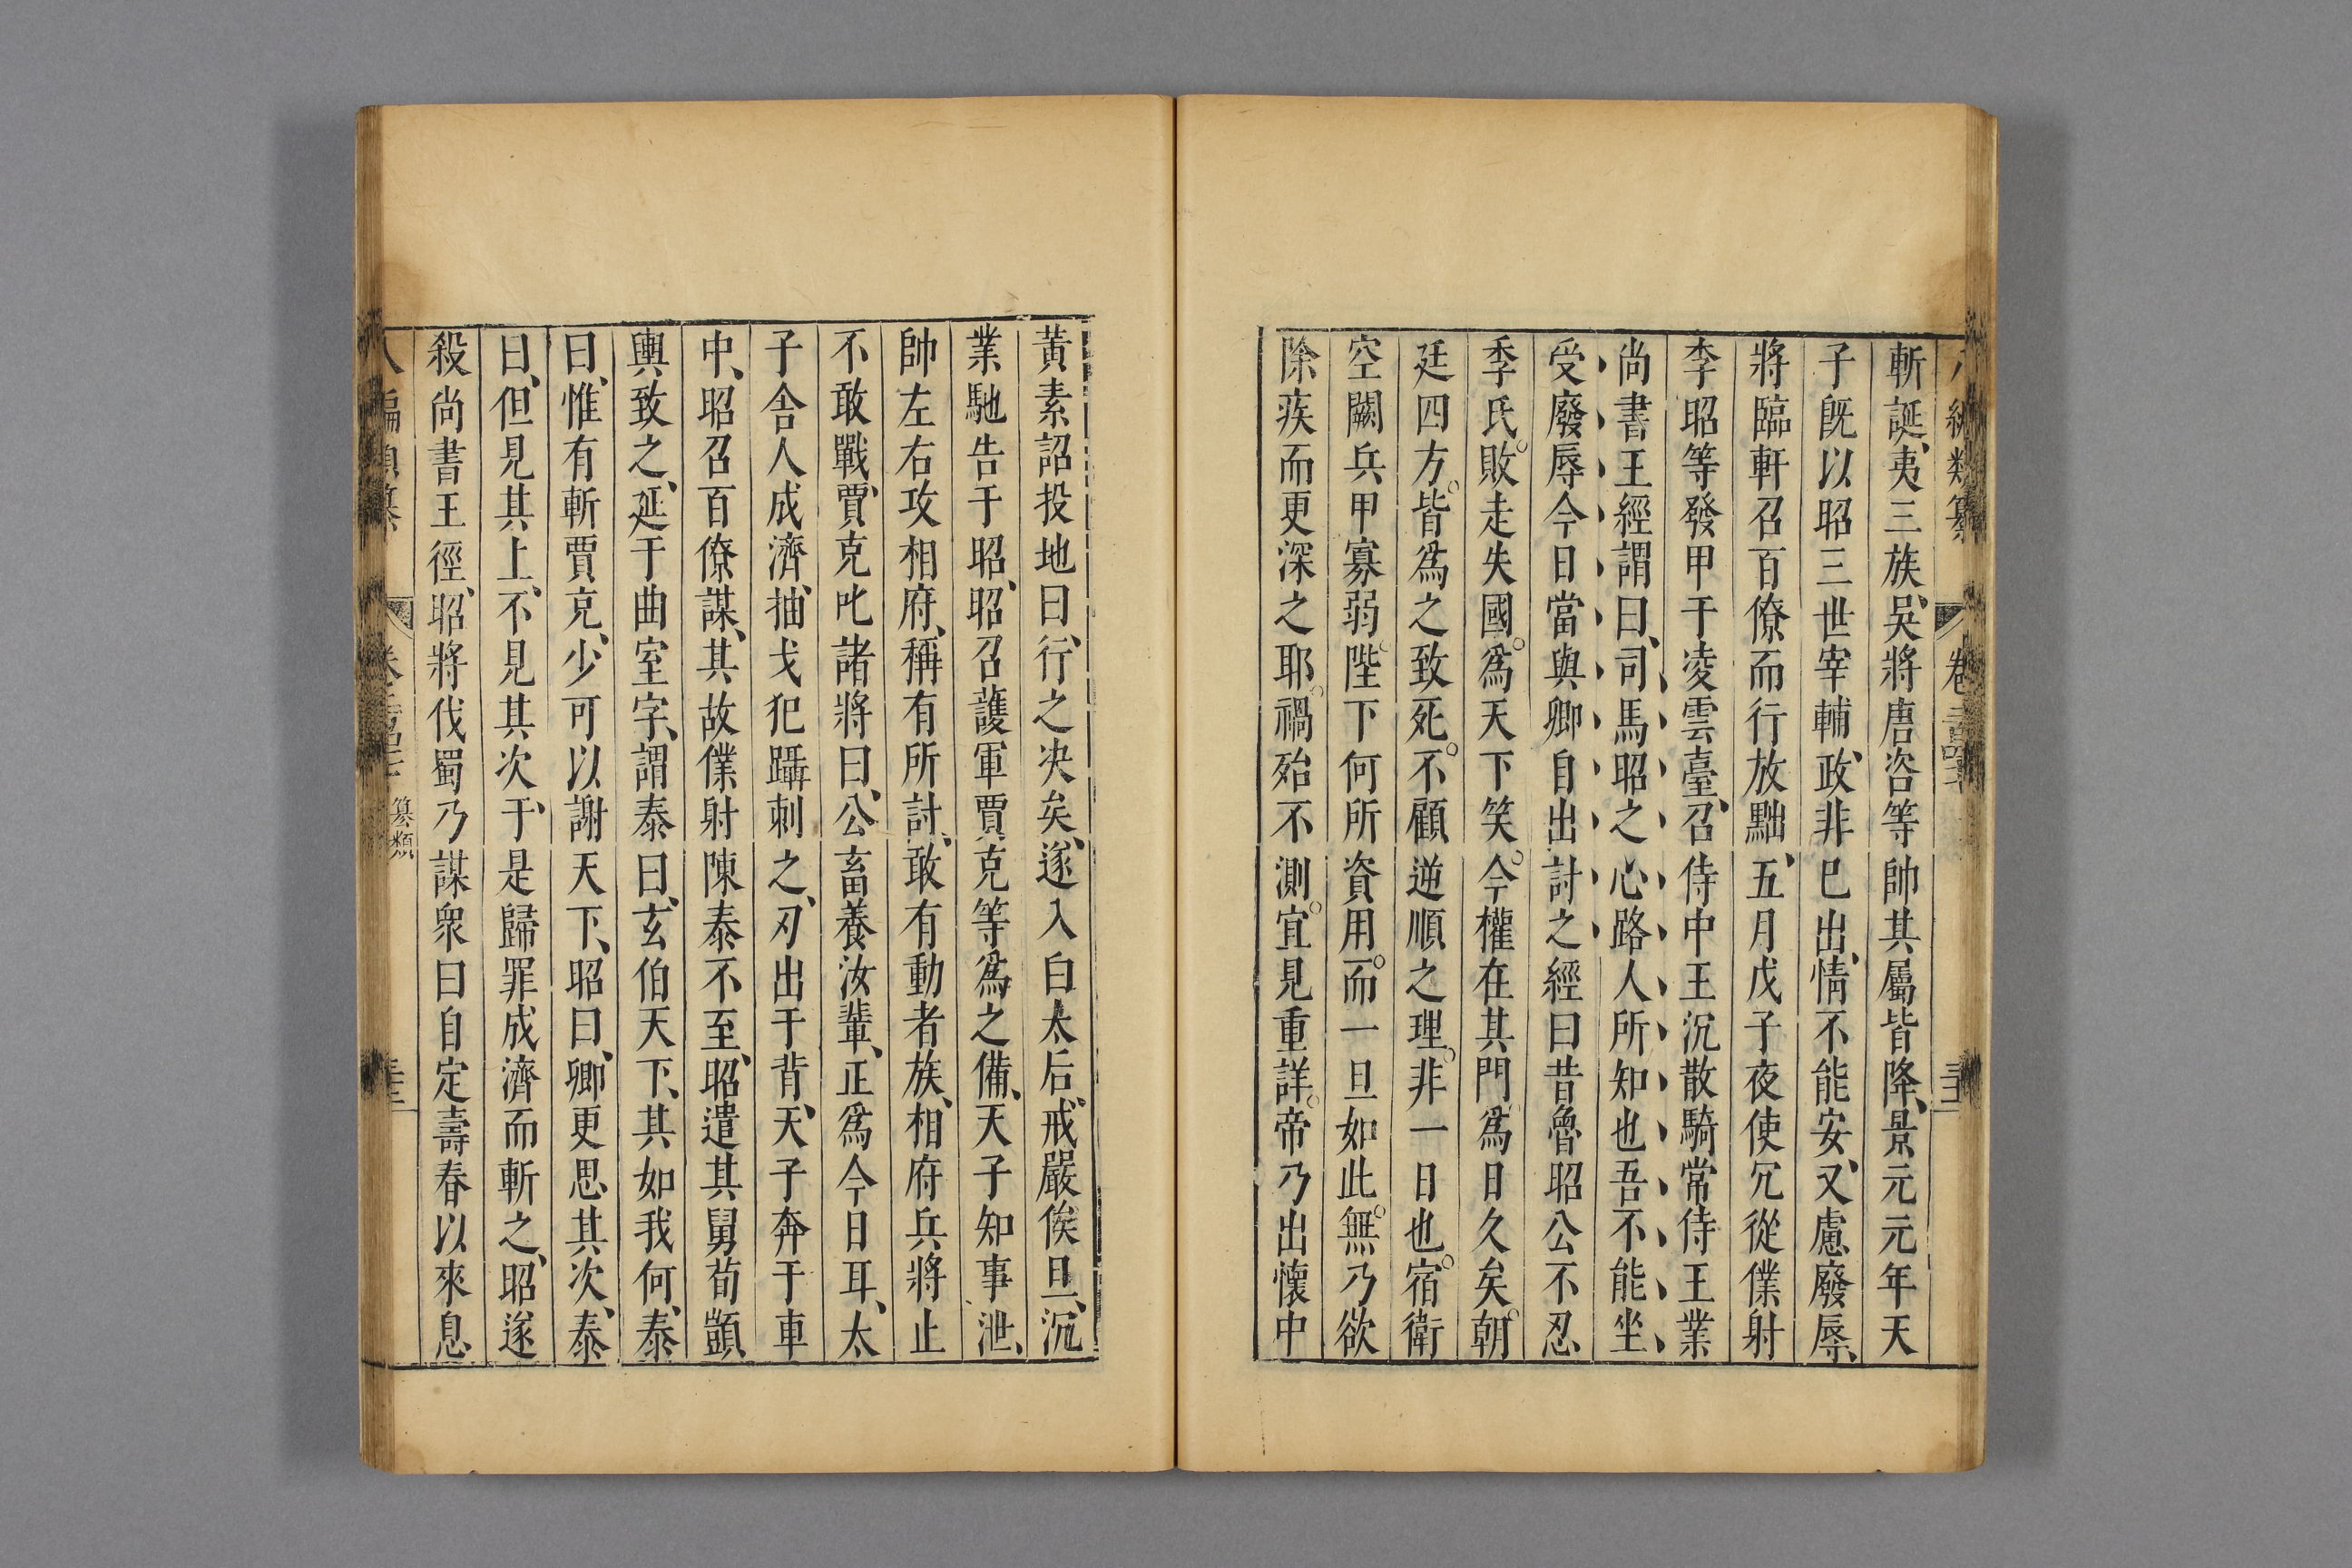 斬誕、夷三族、吳將唐咨等帥其屬皆降、景元元年天
子旣以昭三世宰輔、政非已出、情不能安、又慮廢辱、
將臨軒召百僚而行放黜、五月戊子夜使冗從僕射
李昭等發甲于凌雲臺、召侍中王沉散騎常侍王業
尚書王經謂曰、司馬昭之心路人所知也吾不能坐
受廢辱今日當與卿自出討之經曰昔魯昭公不忍
季氏。敗走失國。爲天下笑。今權在其門爲日久矣。朝
廷四方。皆爲之致死。不顧逆順之理。非一日也。宿衛
空闕兵甲寡弱。陛下何所資用。而一旦如此。無乃欲
除疾而更深之耶。禍殆不測。宜見重詳。帝乃出懷中
黃素詔投地曰、行之决矣、遂入白太后、戒嚴俟旦、沉
業馳告于昭、昭召護軍賈克等爲之備、天子知事泄、
帥左右攻相府、稱有所討、敢有動者族、相府兵將止
不敢戰、賈克叱諸將曰、公畜養汝輩、正爲今日耳、太
子舍人成濟、抽戈犯蹕刺之、刃出于背、天子奔于車
中、昭召百僚謀、其故僕射陳泰不至、昭遣其舅荀顗
輿致之、延于曲室字、謂泰曰、玄伯天下、其如我何、泰
曰、惟有斬賈克、少可以謝天下、昭曰、卿更思其次、泰
曰、但見其上、不見其次、于是歸罪成濟而斬之、昭遂
殺尚書王徑、昭將伐蜀乃謀衆曰自定壽春以來息